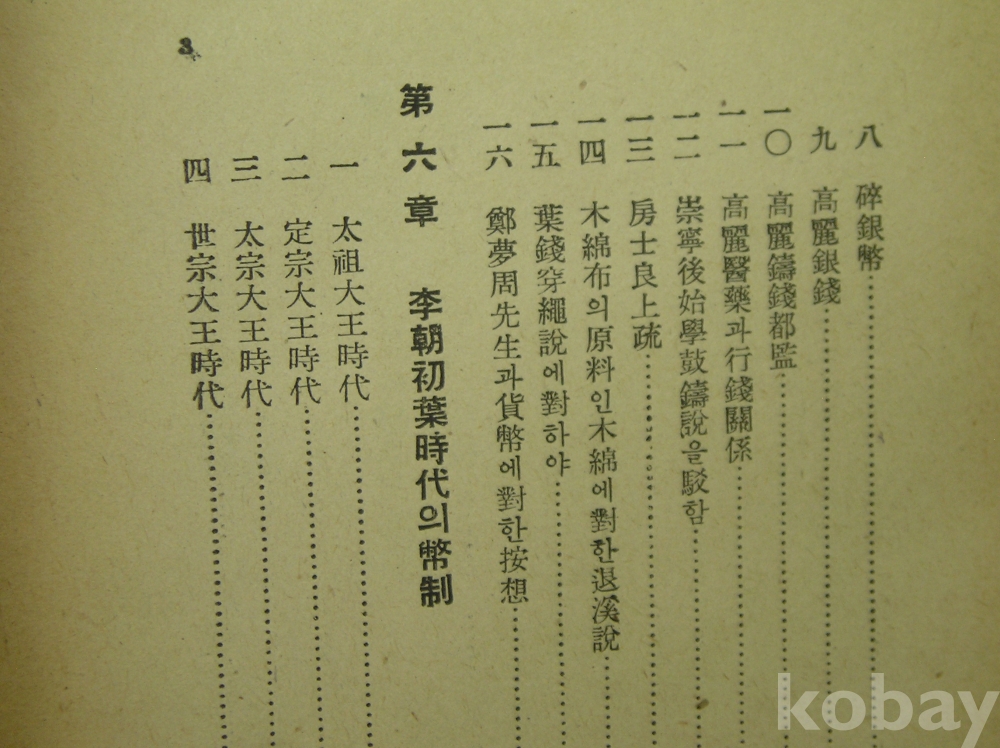 八 碎銀幣
九 高麗銀錢
一〇 高麗鑄錢都監
一一 高麗醫藥과行錢關係
一二 崇寧後始學鼓鑄說을駁함
一三 房士良上疏
一四 木綿布의原料인木綿에對한退溪說
一五 葉錢穿繩說에對하야
一六 鄭夢周先生과貨幣에對한按想
第六章 李朝初葉時代의幣制
一 太祖大王時代
二 定宗大王時代
三 太宗大王時代
四 世宗大王時代
3
kobay